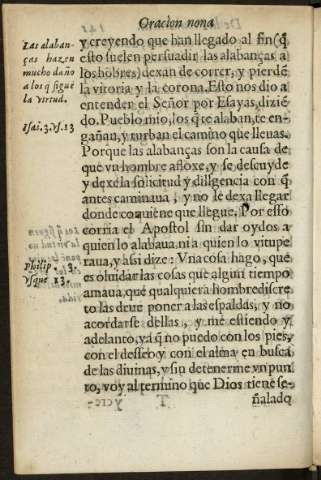 Oracion nona
Las alaban-
ças hazen
mucho daño
a los q̃ sigue
la virtud.
Isai. 3. ỹs. 13
Philip. 3.
ỹsque 13.
y creyendo que han llegado al fin (q̃
esto suelen persuadir las alabanças a
los hõbres) dexan de correr, y pierdẽ
la vitoria y la corona. Esto nos dio a
entender el Señor por Esayas, diziẽ
do. Pueblo mio, los q̃ te alaban, te en-
gañan, y turban el camino que lleuas.
Porque las alabanças son la causa de
que vn hombre afloxe, y se descuyde
y dexe la solicitud y diligencia con q̃
antes caminaua, y no le dexa llegar
donde conuiene que llegue. Por esso
corria el Apostol sin dar oydos a
quien lo alabaua, ni a quien lo vitupe
raua, y assi dize: Vna cosa hago, que
es oluidar las cosas que algun tiempo
amaua, que qualquiera hombre discre
to las deue poner a las espaldas, y no
acordarse dellas, y me estiendo y
adelanto, ya q̃ no puedo con los pies,
con el desseo y con el alma en busca
de las diuinas, y sin detenerme vn pun
to, voy al termino que Dios tiene se-
ñalado